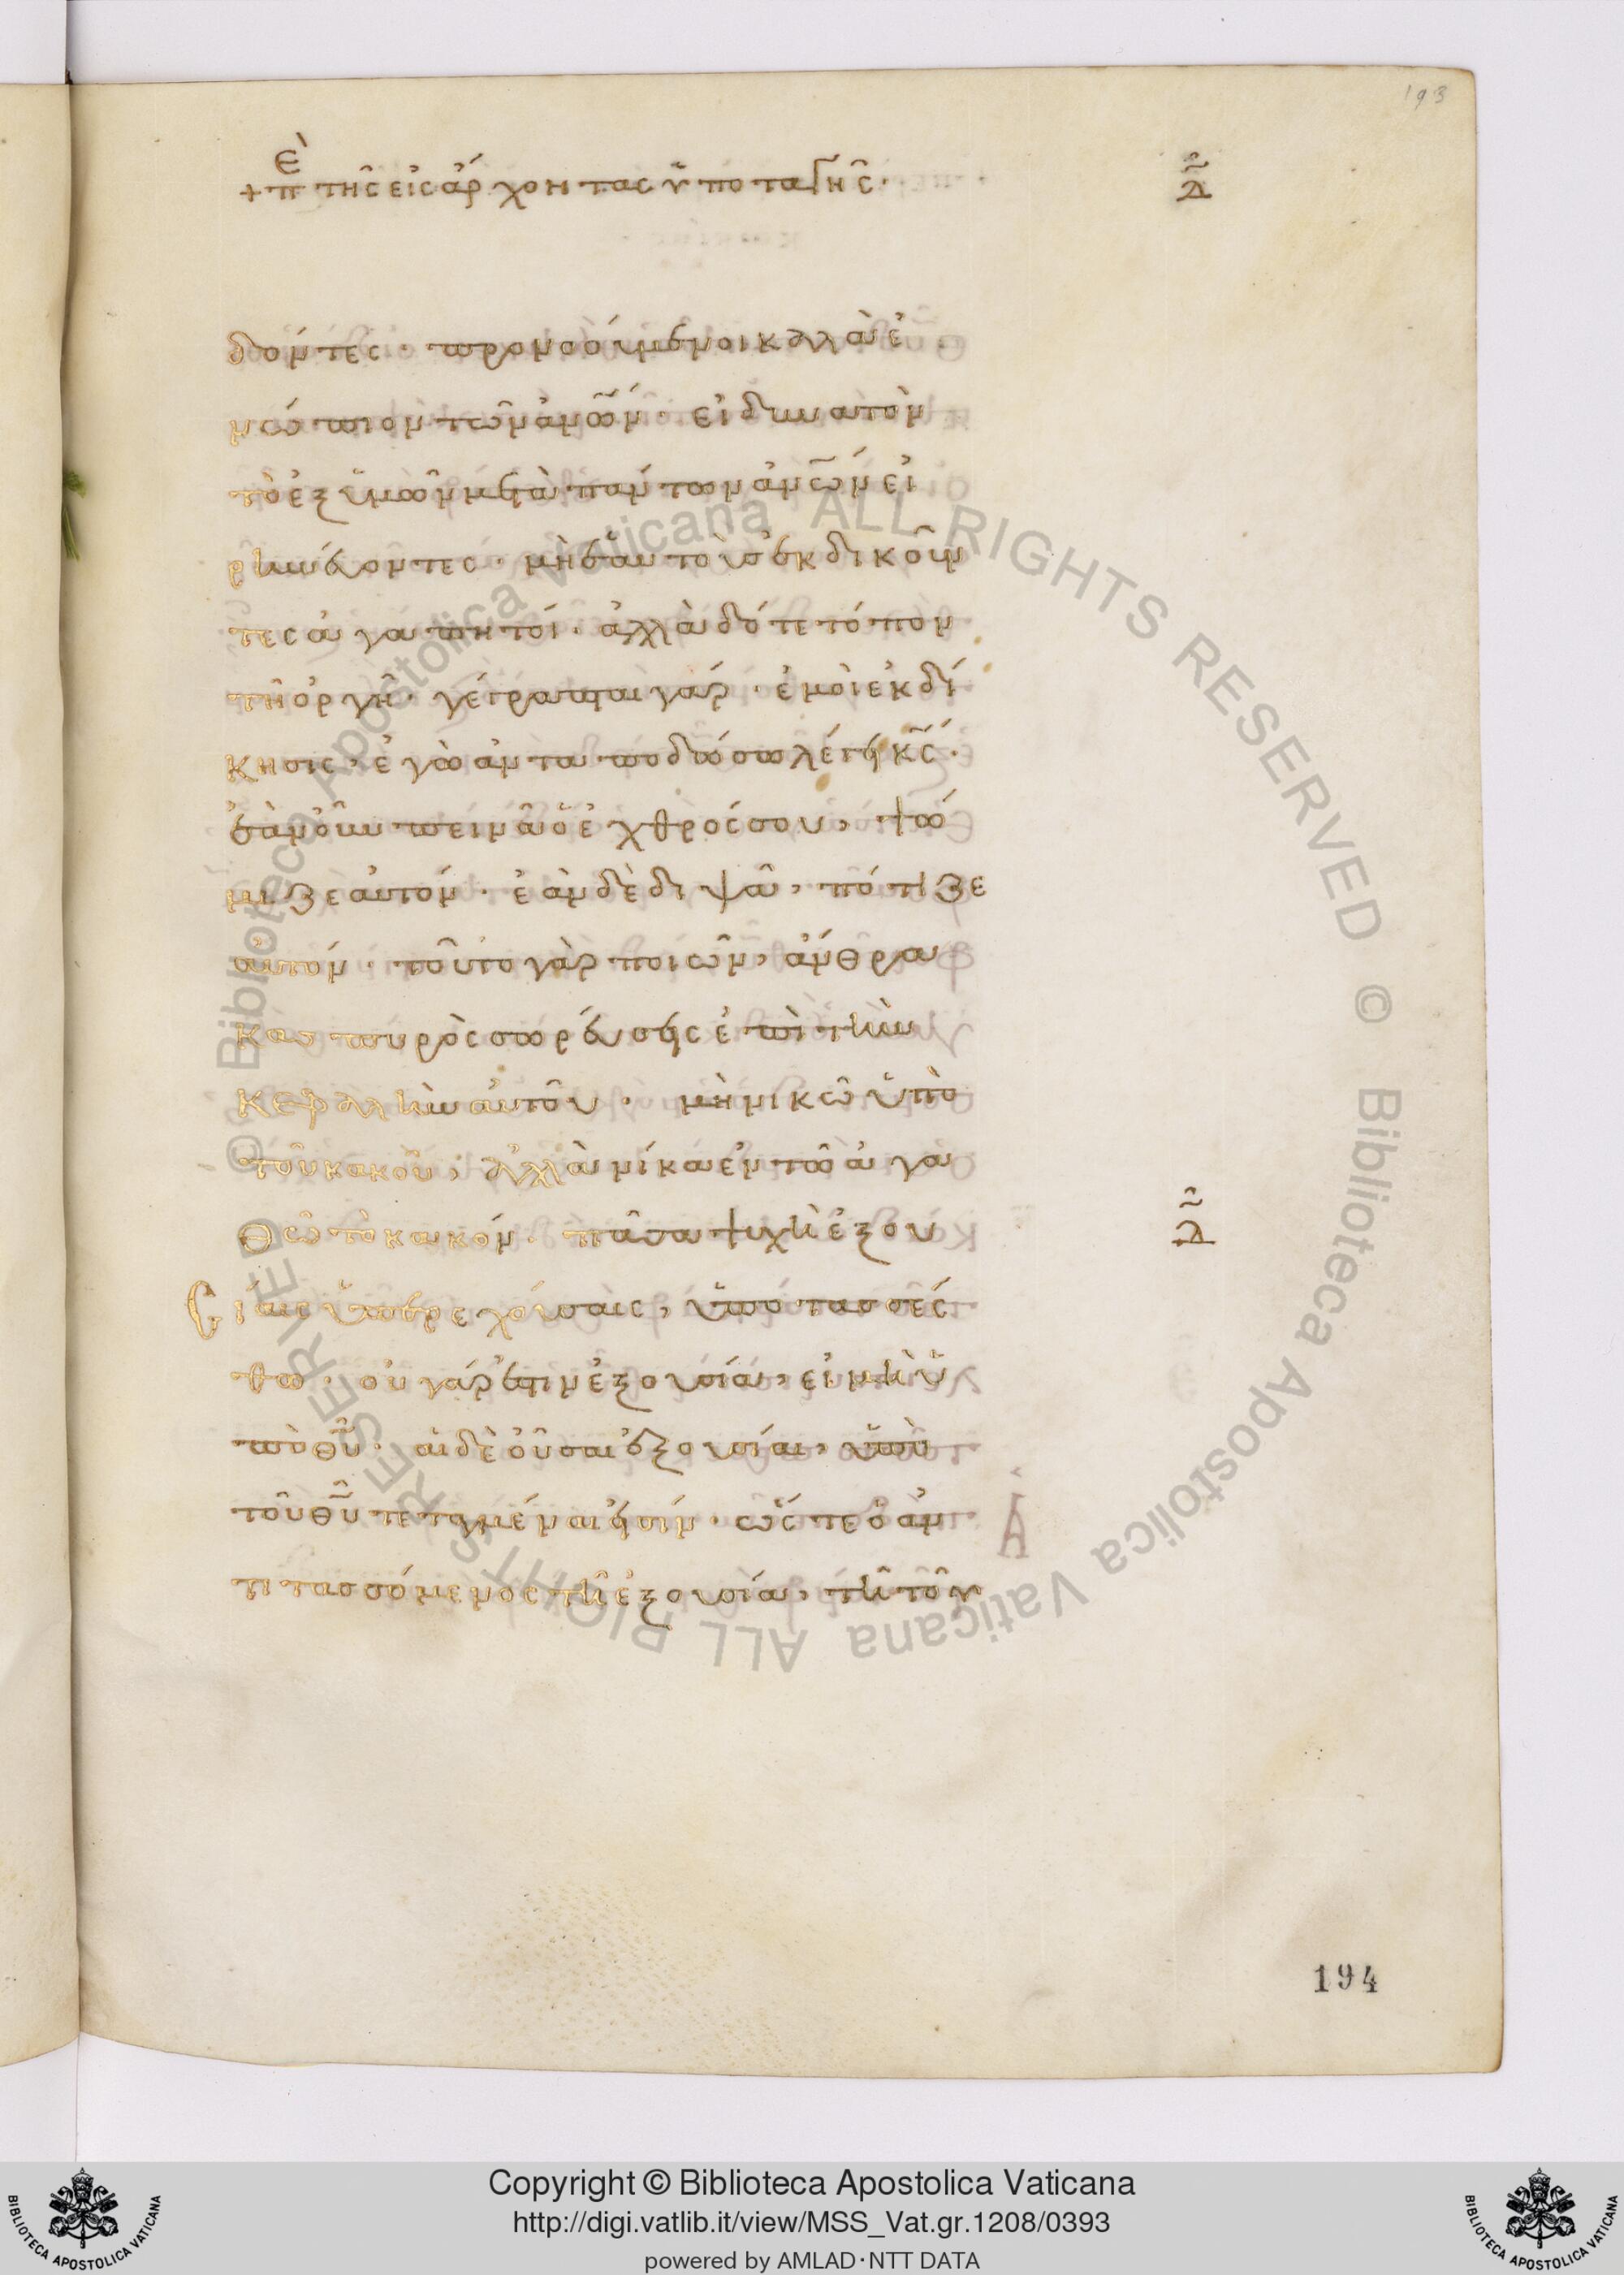 193
+ πὲ τῆς εἰς ἄρχοντας ὑποταγῆς· λ̃
δόντες· προνοούμενοι καλὰ ἐ
νώπιον τῶν ἀν̅ω̅ν· εἰ δυνατὸν
τὸ ἐξ ὑμῶν μετὰ πάντων ἀν̅ω̅ν εἰ
ρηνεύοντες· μὴ ἑαυτοὺς ἐκδικοῦν
τες ἀγαπητοί· ἀλλὰ δότε τόπον
τῆ ὀργῆ· γέγραπται γάρ· ἐμοὶ ἐκδί
κησις, ἐγὼ ἀνταποδώσω λέγει κ̅ς̅·
ἐὰν οὖν πεινᾶ ὁ ἐχθρός σου, ψώ
μιζε αὐτόν· ἐὰν δὲ διψᾶ, πότιζε
αὐτόν· τοῦτο γὰρ ποιῶν, ἄνθρα
κας πυρὸς σωρεύσεις ἐπὶ τὴν
κεφαλὴν αὐτοῦ· μὴ νικῶ ὑπὸ
τοῦ κακοῦ, ἀλλὰ νίκα ἐν τῶ ἀγα
θῶ τὸ κακόν· πᾶσα ψυχὴ ἐξου λ̃
σίαις ὑπερεχούσαις, ὑποτασσέσ
θω· οὐ γάρ ἐστιν ἐξουσία, εἰ μὴ ὑ
πὸ θ̅υ̅· αἱ δὲ οὖσαι ἐξουσίαι, ὑπὸ
τοῦ θ̅υ̅ τεταγμέναι εἰσίν· ὥστε ὁ ἀν
τιτασσόμενος τῆ ἐξουσία, τῆ τοῦ
194
© Biblioteca Apostolica Vaticana ALL RIGHTS RESERVED © Biblioteca Apostolica Vaticana ALL RIGHTS RESERVED
Copyright © Biblioteca Apostolica Vaticana
http://digi.vatlib.it/view/MSS_Vat.gr.1208/0393
powered by AMLAD·NTT DATA
BIBLIOTECA APOSTOLICA VATICANA
BIBLIOTECA APOSTOLICA VATICANA